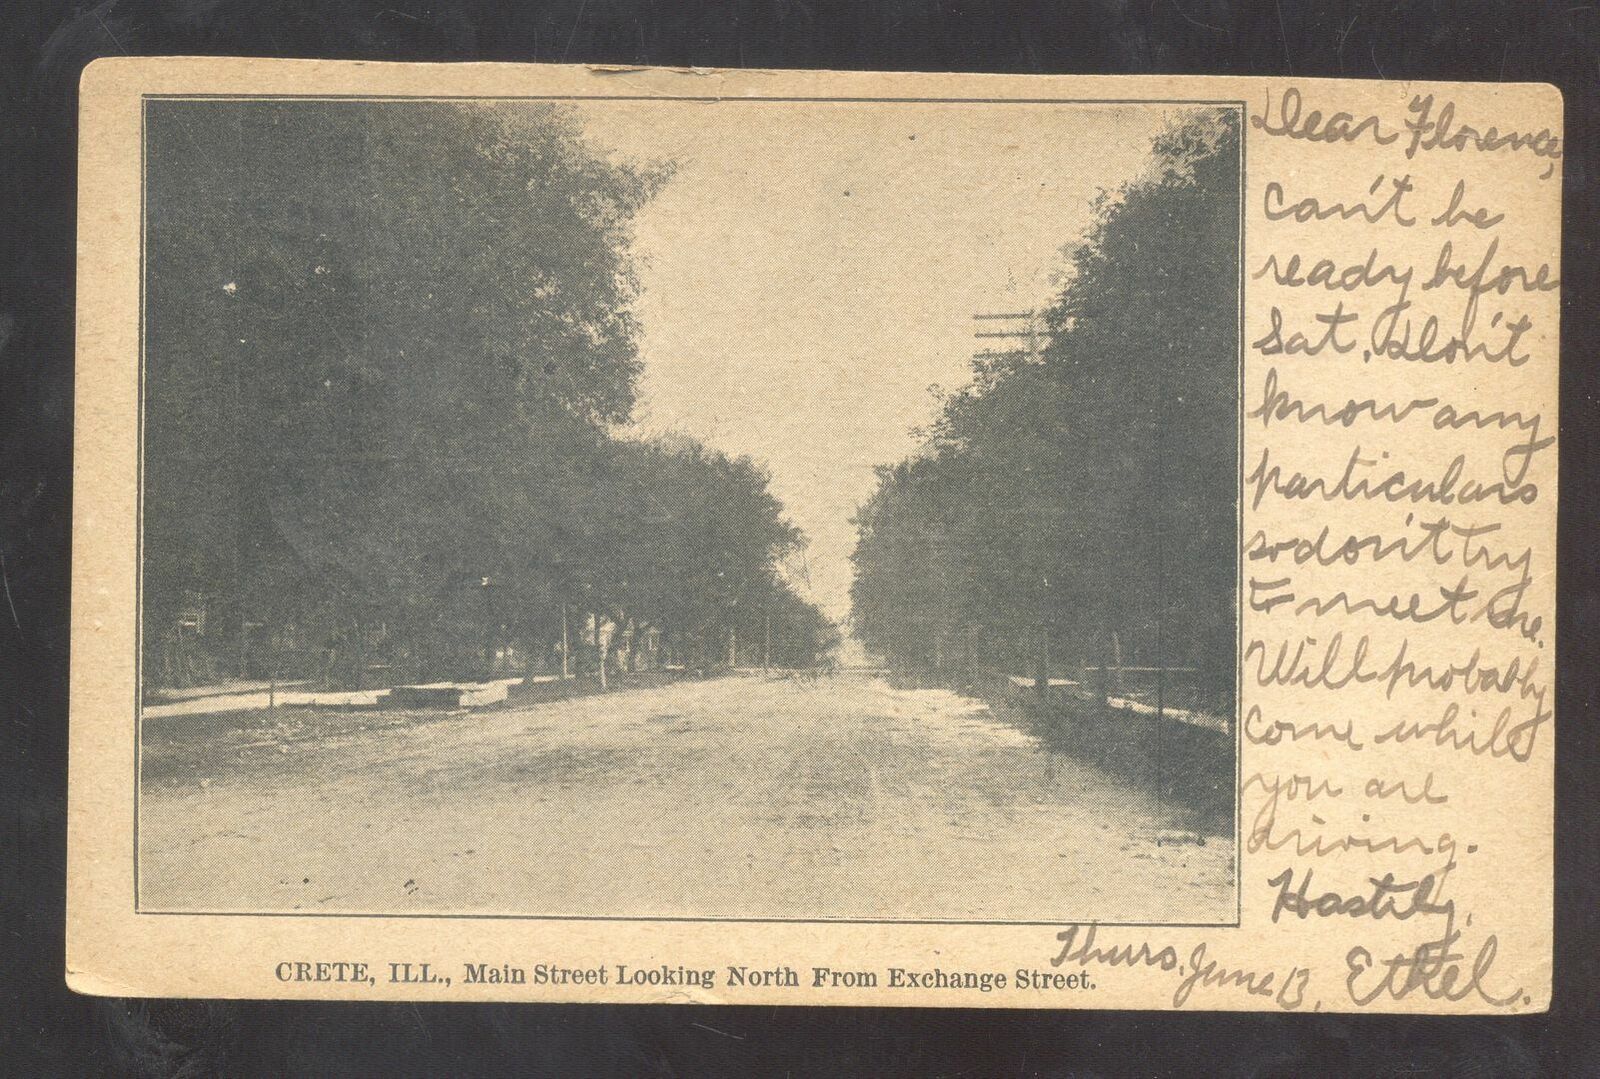 Dear Florence,
can't be
ready before
Sat. Don't
know any
particulars
so don't try
to meet me.
Will probably
come while
you are
driving.
Hastily,
Ethel.
Thurs, June 13,
CRETE, ILL., Main Street Looking North From Exchange Street.